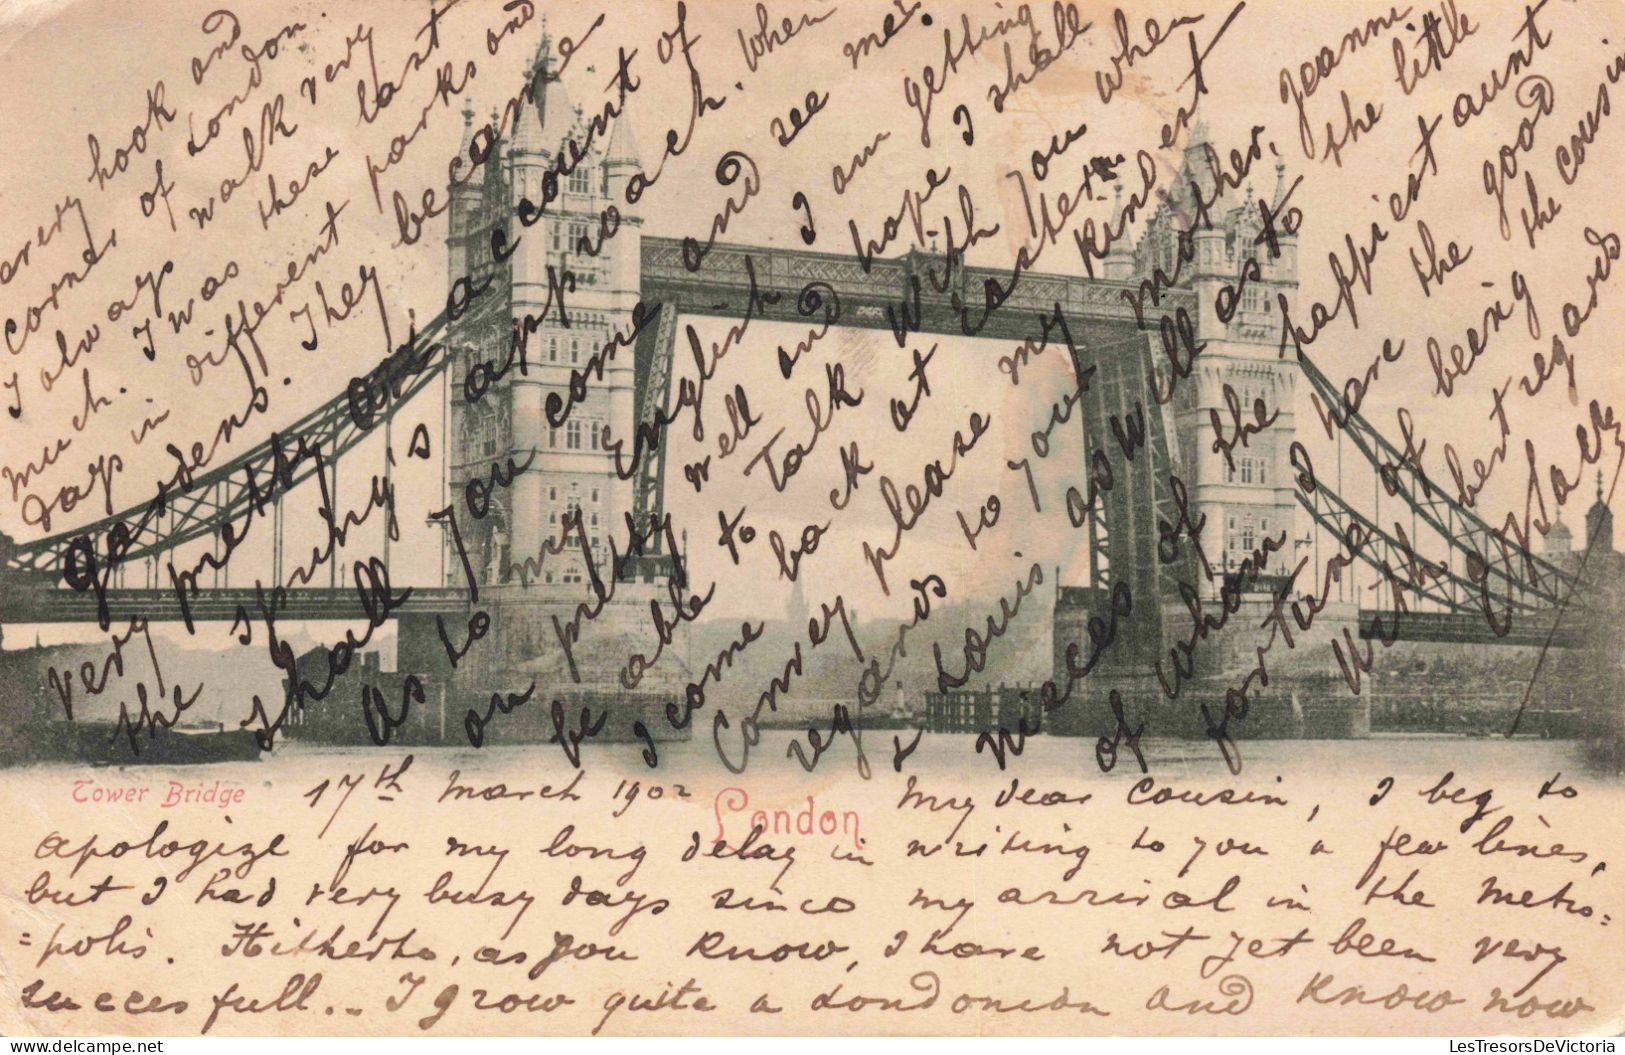 Tower Bridge
London
17th March 1902
My dear Cousin, I beg to
apologize for my long delay in writing to you a few lines,
but I had very busy days since my arrival in the Metro=
=polis. Hitherto, as you know, I have not yet been very
succesfull... I grow quite a Londonian and know now
every hook and
corner of London.
I always walk very
much. I was these last
days in different parks and
gardens. They become
very pretty on account of
the spring's approach. When
shall you come and see me?
As to my English I am getting
on pretty well and hope I shall
be able to talk with you when
I come back at Eastern
Convey please my kindest
regards to your mother, Jeanne
& Louis as well as to the little
nieces of the happiest aunt
of whom I have the good
fortune of being the cousin
With best regards
LesTresorsDeVictoria - delcampe.net
LesTresorsDeVictoria